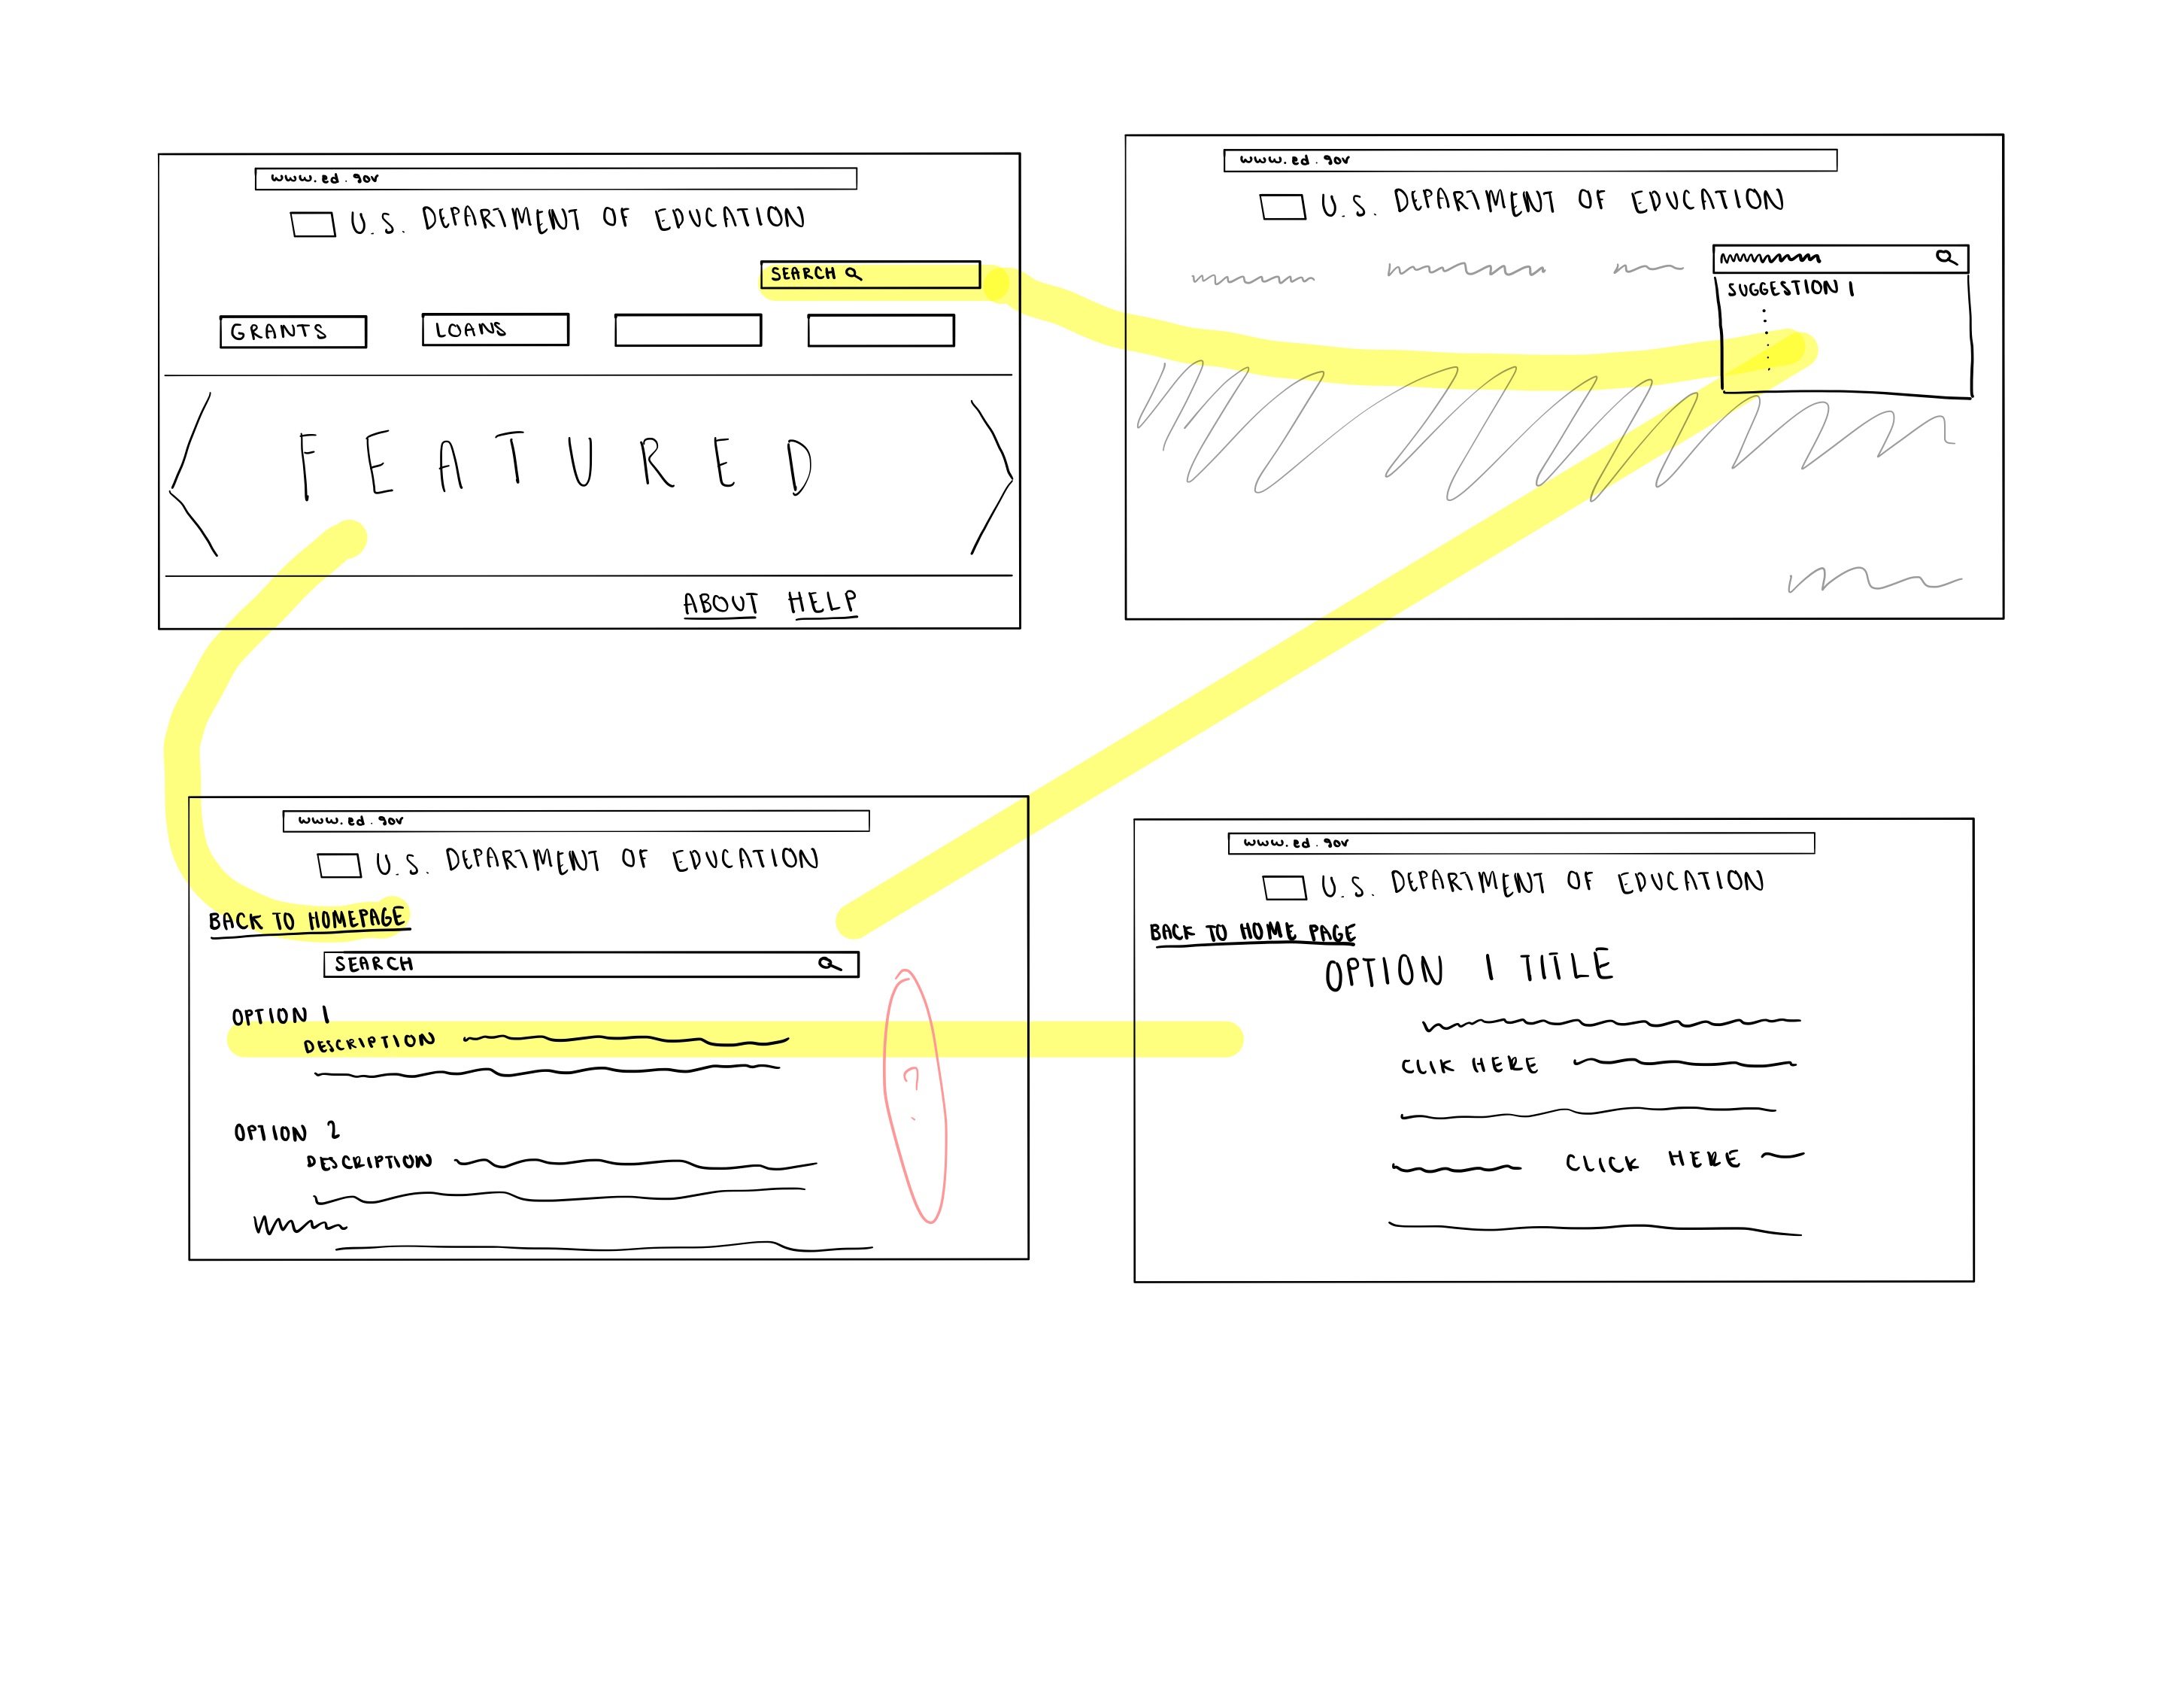 www.ed.gov
U.S. DEPARTMENT OF EDUCATION
SEARCH
GRANTS LOANS
FEATURED
ABOUT HELP
www.ed.gov
U.S. DEPARTMENT OF EDUCATION
SUGGESTION 1
www.ed.gov
U.S. DEPARTMENT OF EDUCATION
BACK TO HOMEPAGE
SEARCH
OPTION 1
DESCRIPTION
?
OPTION 2
DESCRIPTION
www.ed.gov
U.S. DEPARTMENT OF EDUCATION
BACK TO HOME PAGE
OPTION 1 TITLE
CLIK HERE
CLICK HERE